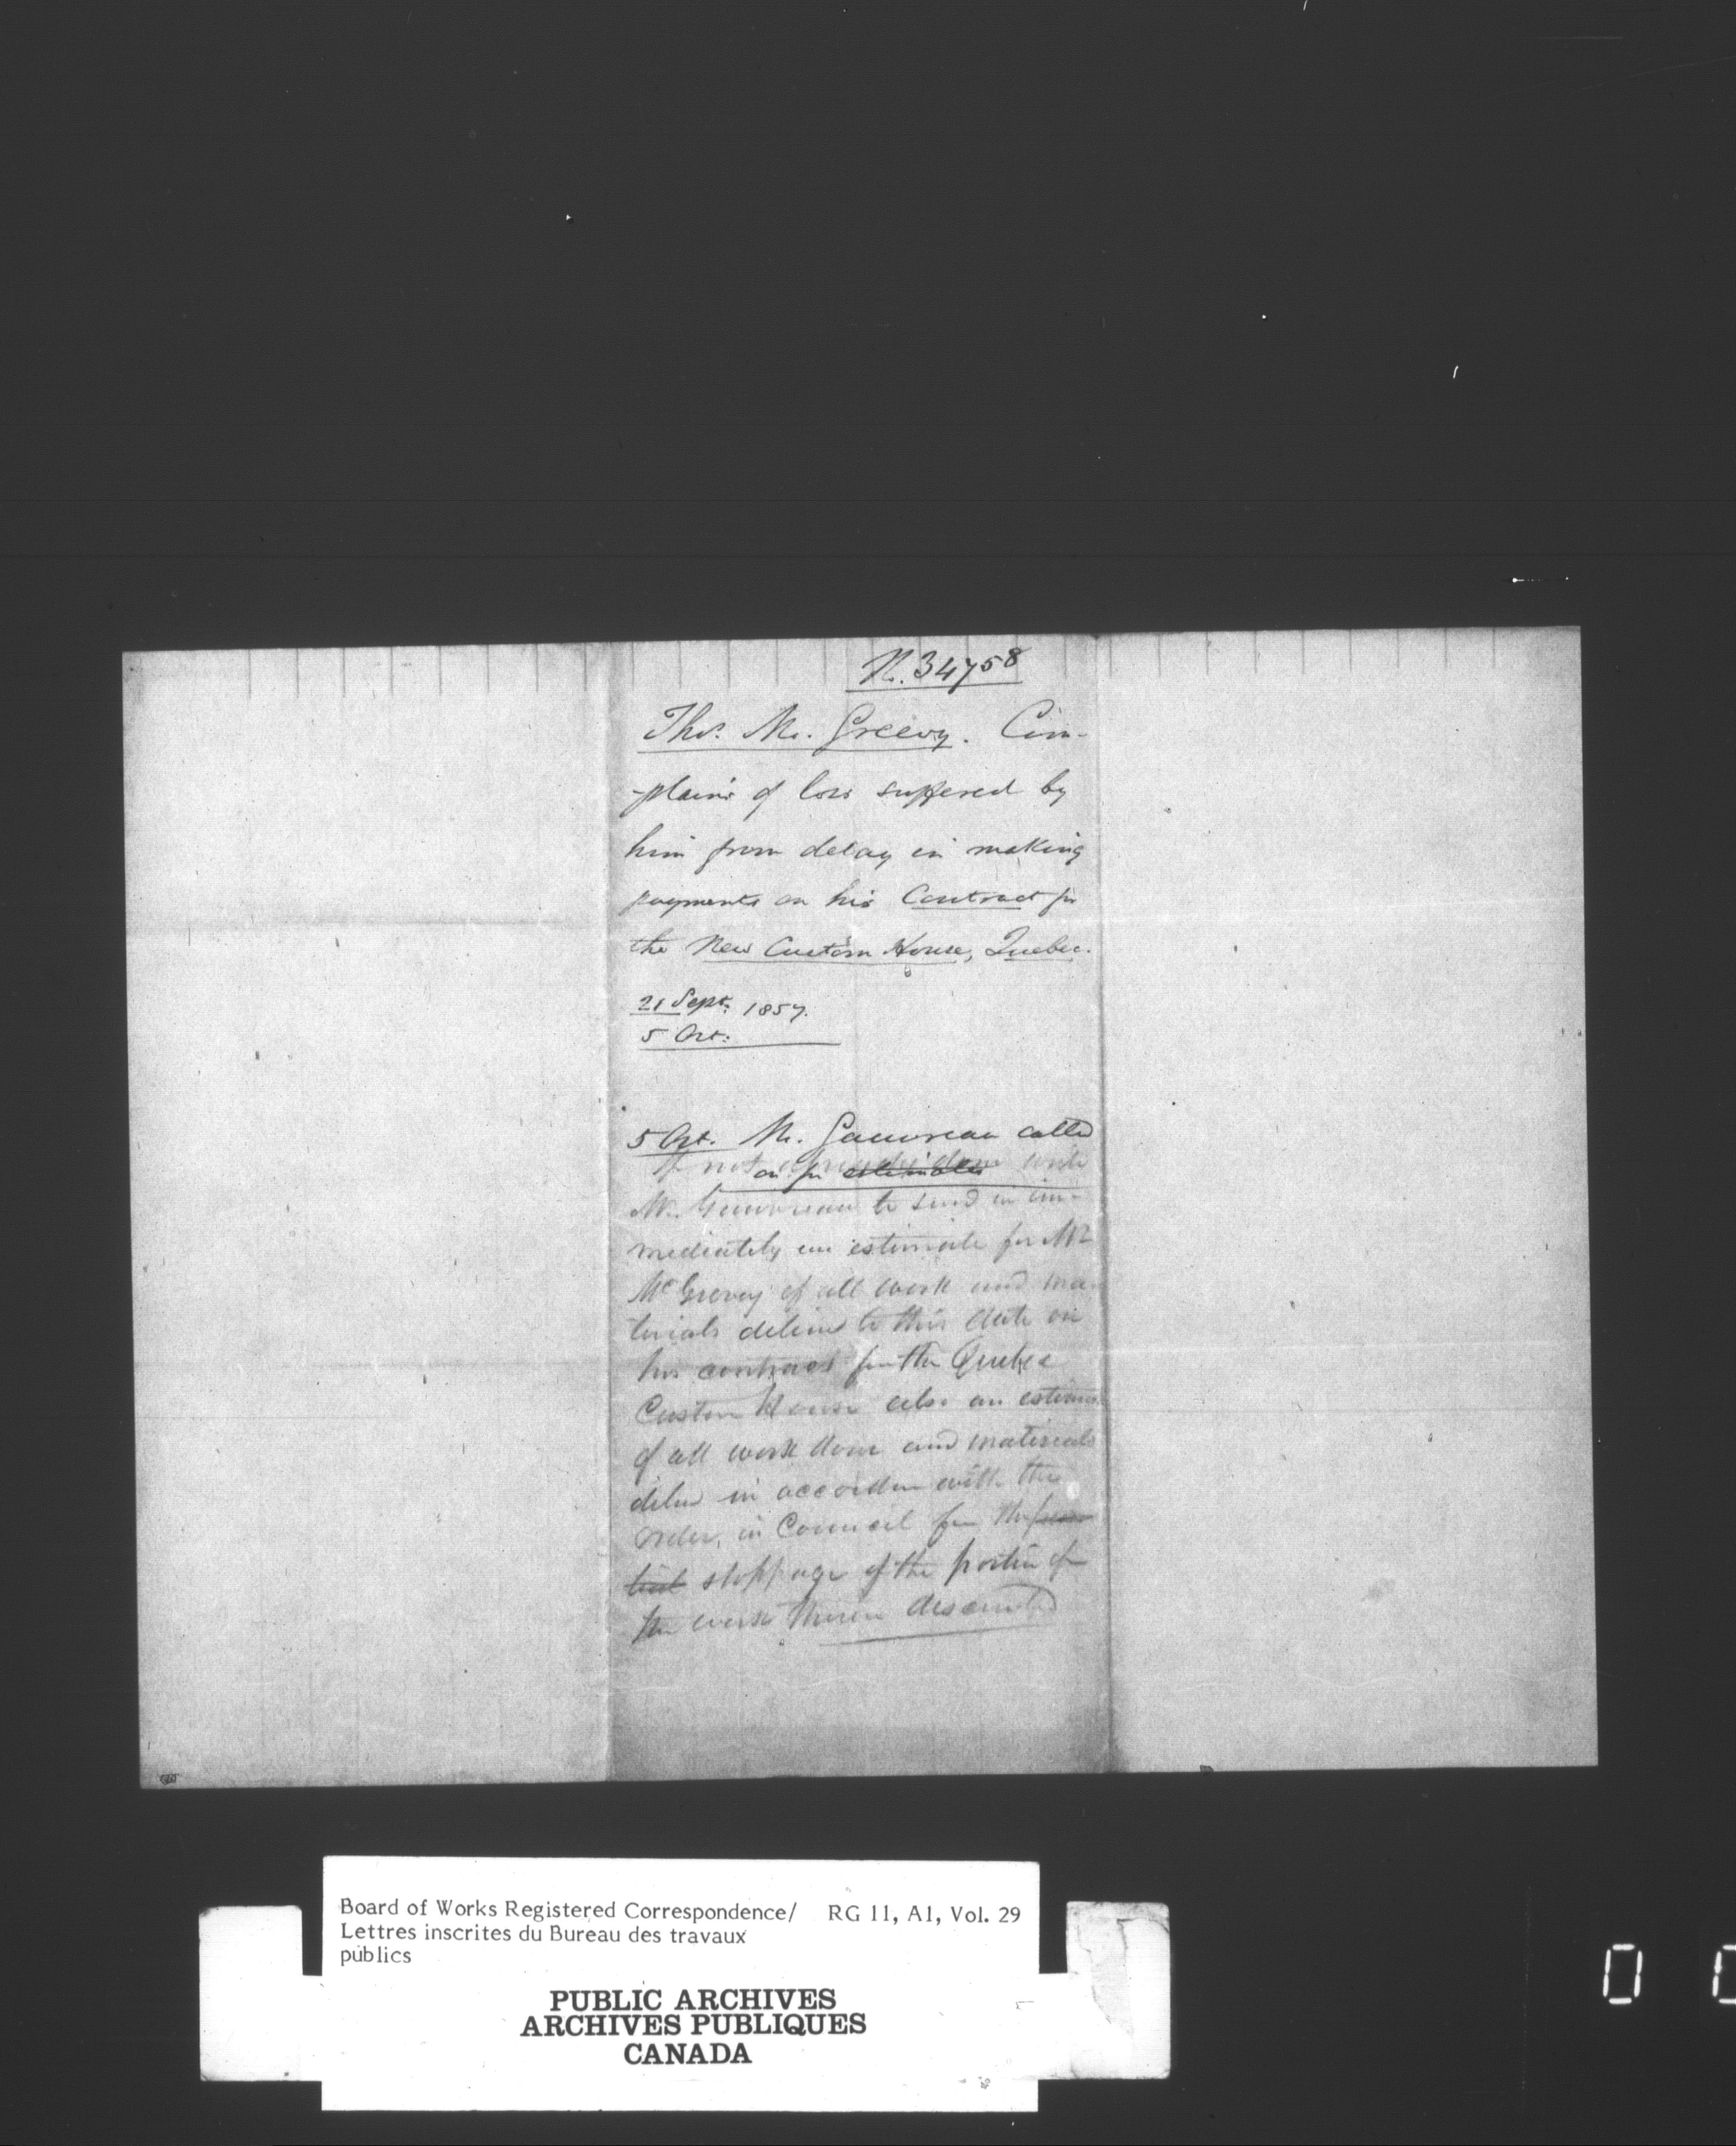 N. 34758
Thos. Mc. Greevy. Com-
-plains of loss suffered by
him from delay in making
payments on his Contract for
the New Custom House, Quebec.
21 Sept. 1857.
5 Oct.
5 Oct. Mr. Gauvreau called
on for estimates
If not already done write
Mr. Gauvreau to send in im-
mediately an estimate for Mr
McGreevy of all work and ma
terials delivd to this date on
his contract for the Quebec
Custom House also an estimate
of all work done and materials
delivd in accordan with the
Order in Council for the
stoppage of the portion of
the work therein described
Board of Works Registered Correspondence/ RG 11, A1, Vol. 29
Lettres inscrites du Bureau des travaux
publics
PUBLIC ARCHIVES
ARCHIVES PUBLIQUES
CANADA
0